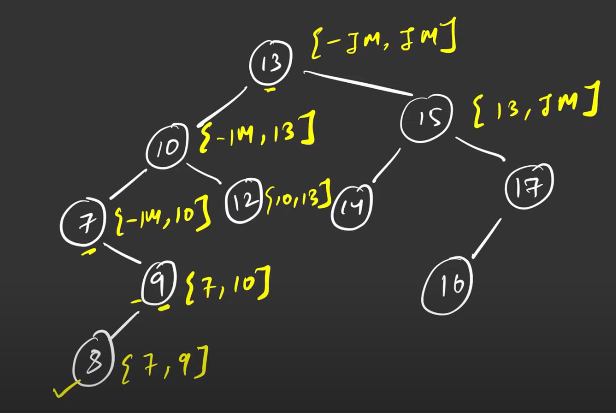 13 [-IM, IM]
10 {-IM, 13]
15 { 13, IM]
7 {-IM, 10]
12 {10, 13]
14
17
9 {7, 10]
16
8 {7, 9]